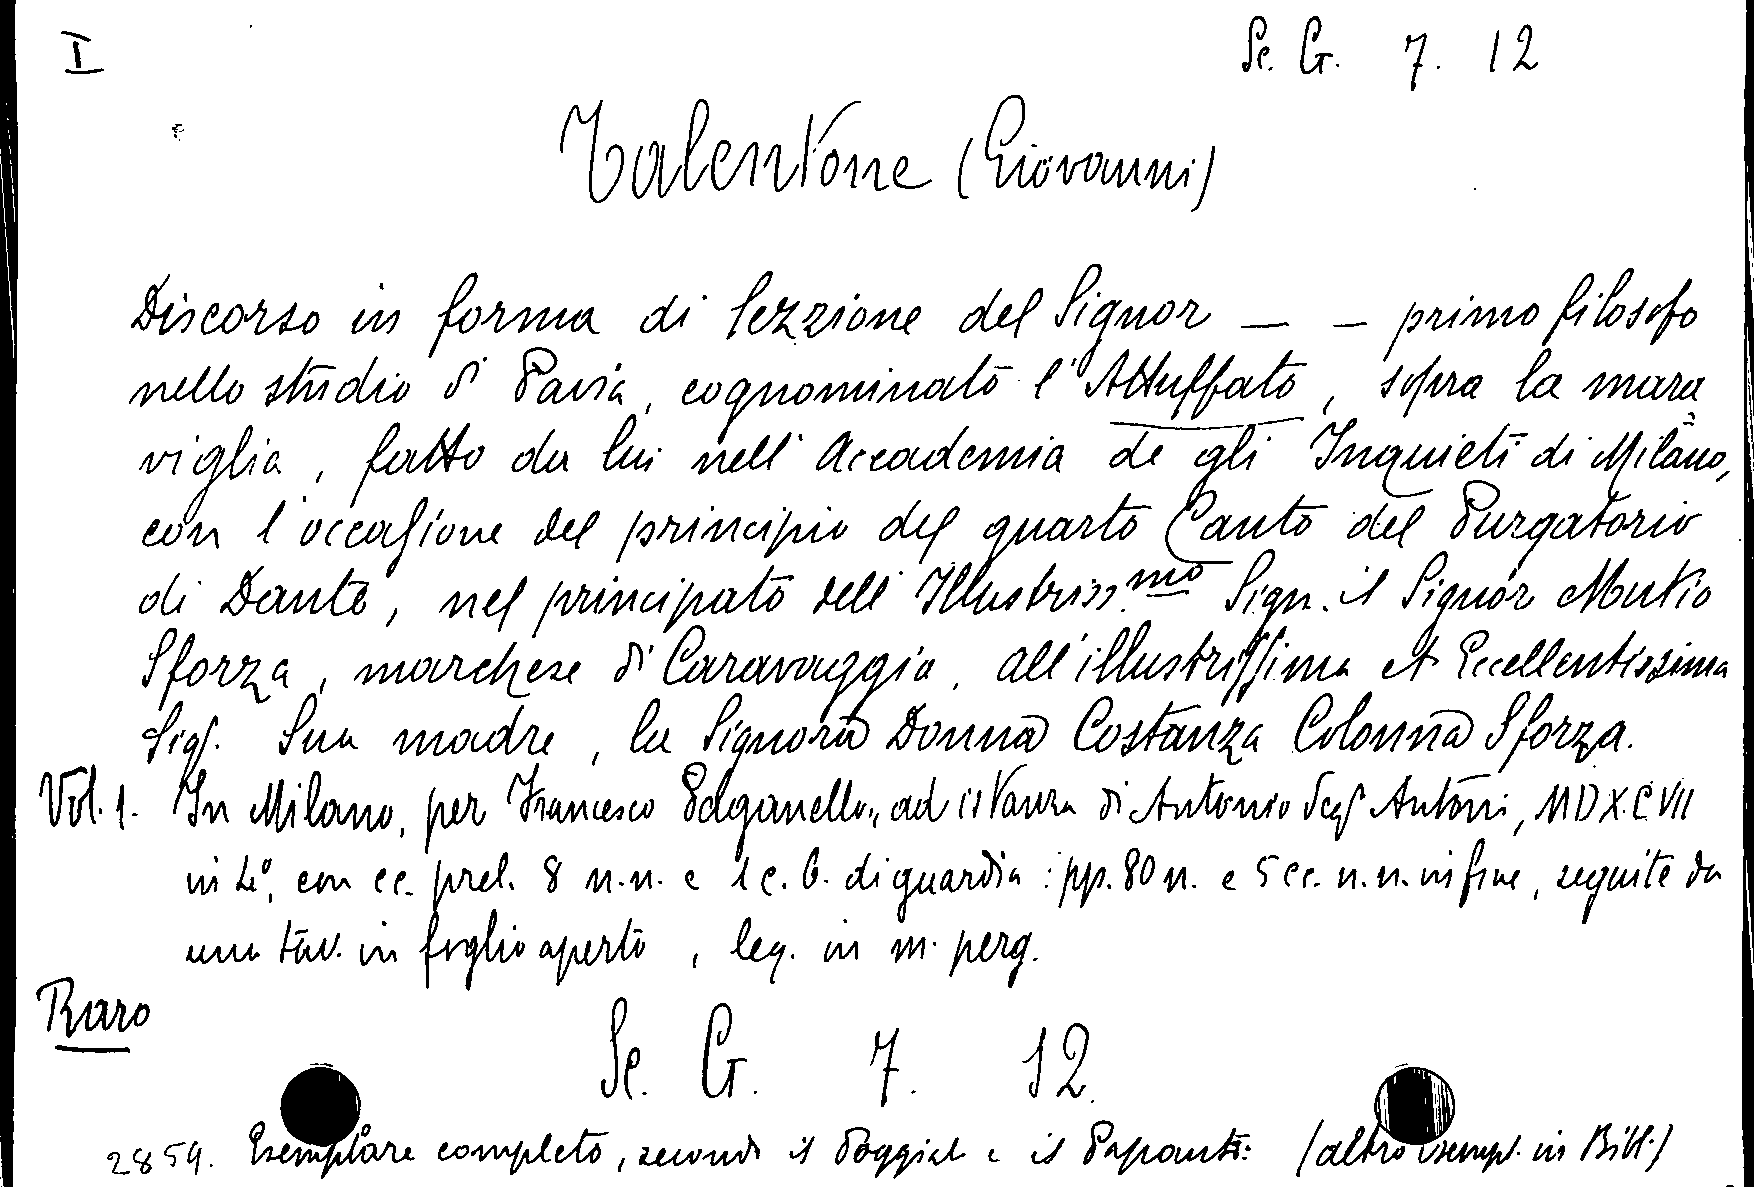 I
Sc. G. 7. 12
Talentone (Giovanni)
Discorso in forma di lezzione del Signor — — primo filosofo
nello studio di Pavia, cognominato l'Attuffato, sopra la mara
viglia, fatto da lui nell'Accademia de gli Inquieti di Milano,
con l'occasione del principio del quarto Canto del Purgatorio
di Dante, nel principato dell'Illustriss.mo Sign. il Signor Mutio
Sforza, marchese di Caravaggio, all'illustrissima et Eccellentissima
Sig. Sua madre, la Signora Donna Costanza Colonna Sforza.
Vol. 1. In Milano, per Francesco Paganello, ad istanza di Antonio degl'Antoni, MDXCVII
in 4°, con cc. prel. 8 n.n. e 1 c. b. di guardia: pp. 80 n. e 5 cc. n.n. in fine, seguite da
una tav. in foglio aperto, leg. in m. perg.
Raro
Sc. G. 7. 12.
2859. Esemplare completo, secondo il Poggiali e il Papanti: (altro esempl. in Bibl.)